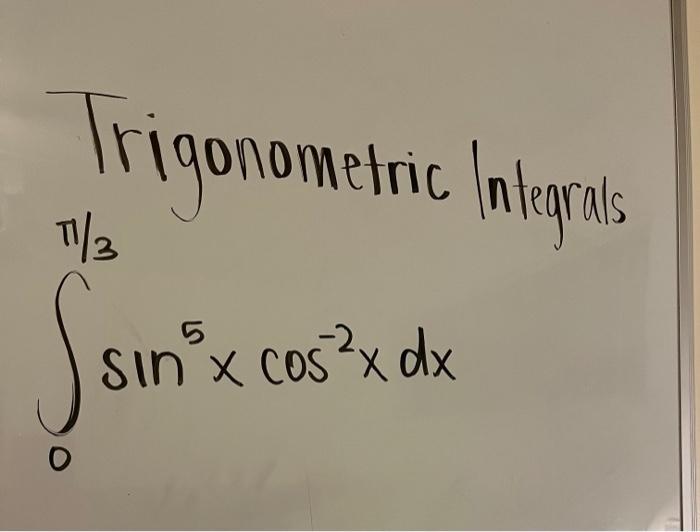 Trigonometric Integrals
π/3
∫ sin⁵x cos⁻²x dx
0